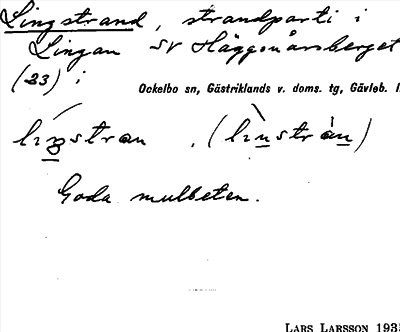 Lingstrand, strandparti i
Lingan SV Häggonåsberget
(23) i
Ockelbo sn, Gästriklands v. doms. tg, Gävleb. l
Goda mulbeten.
LARS LARSSON 193